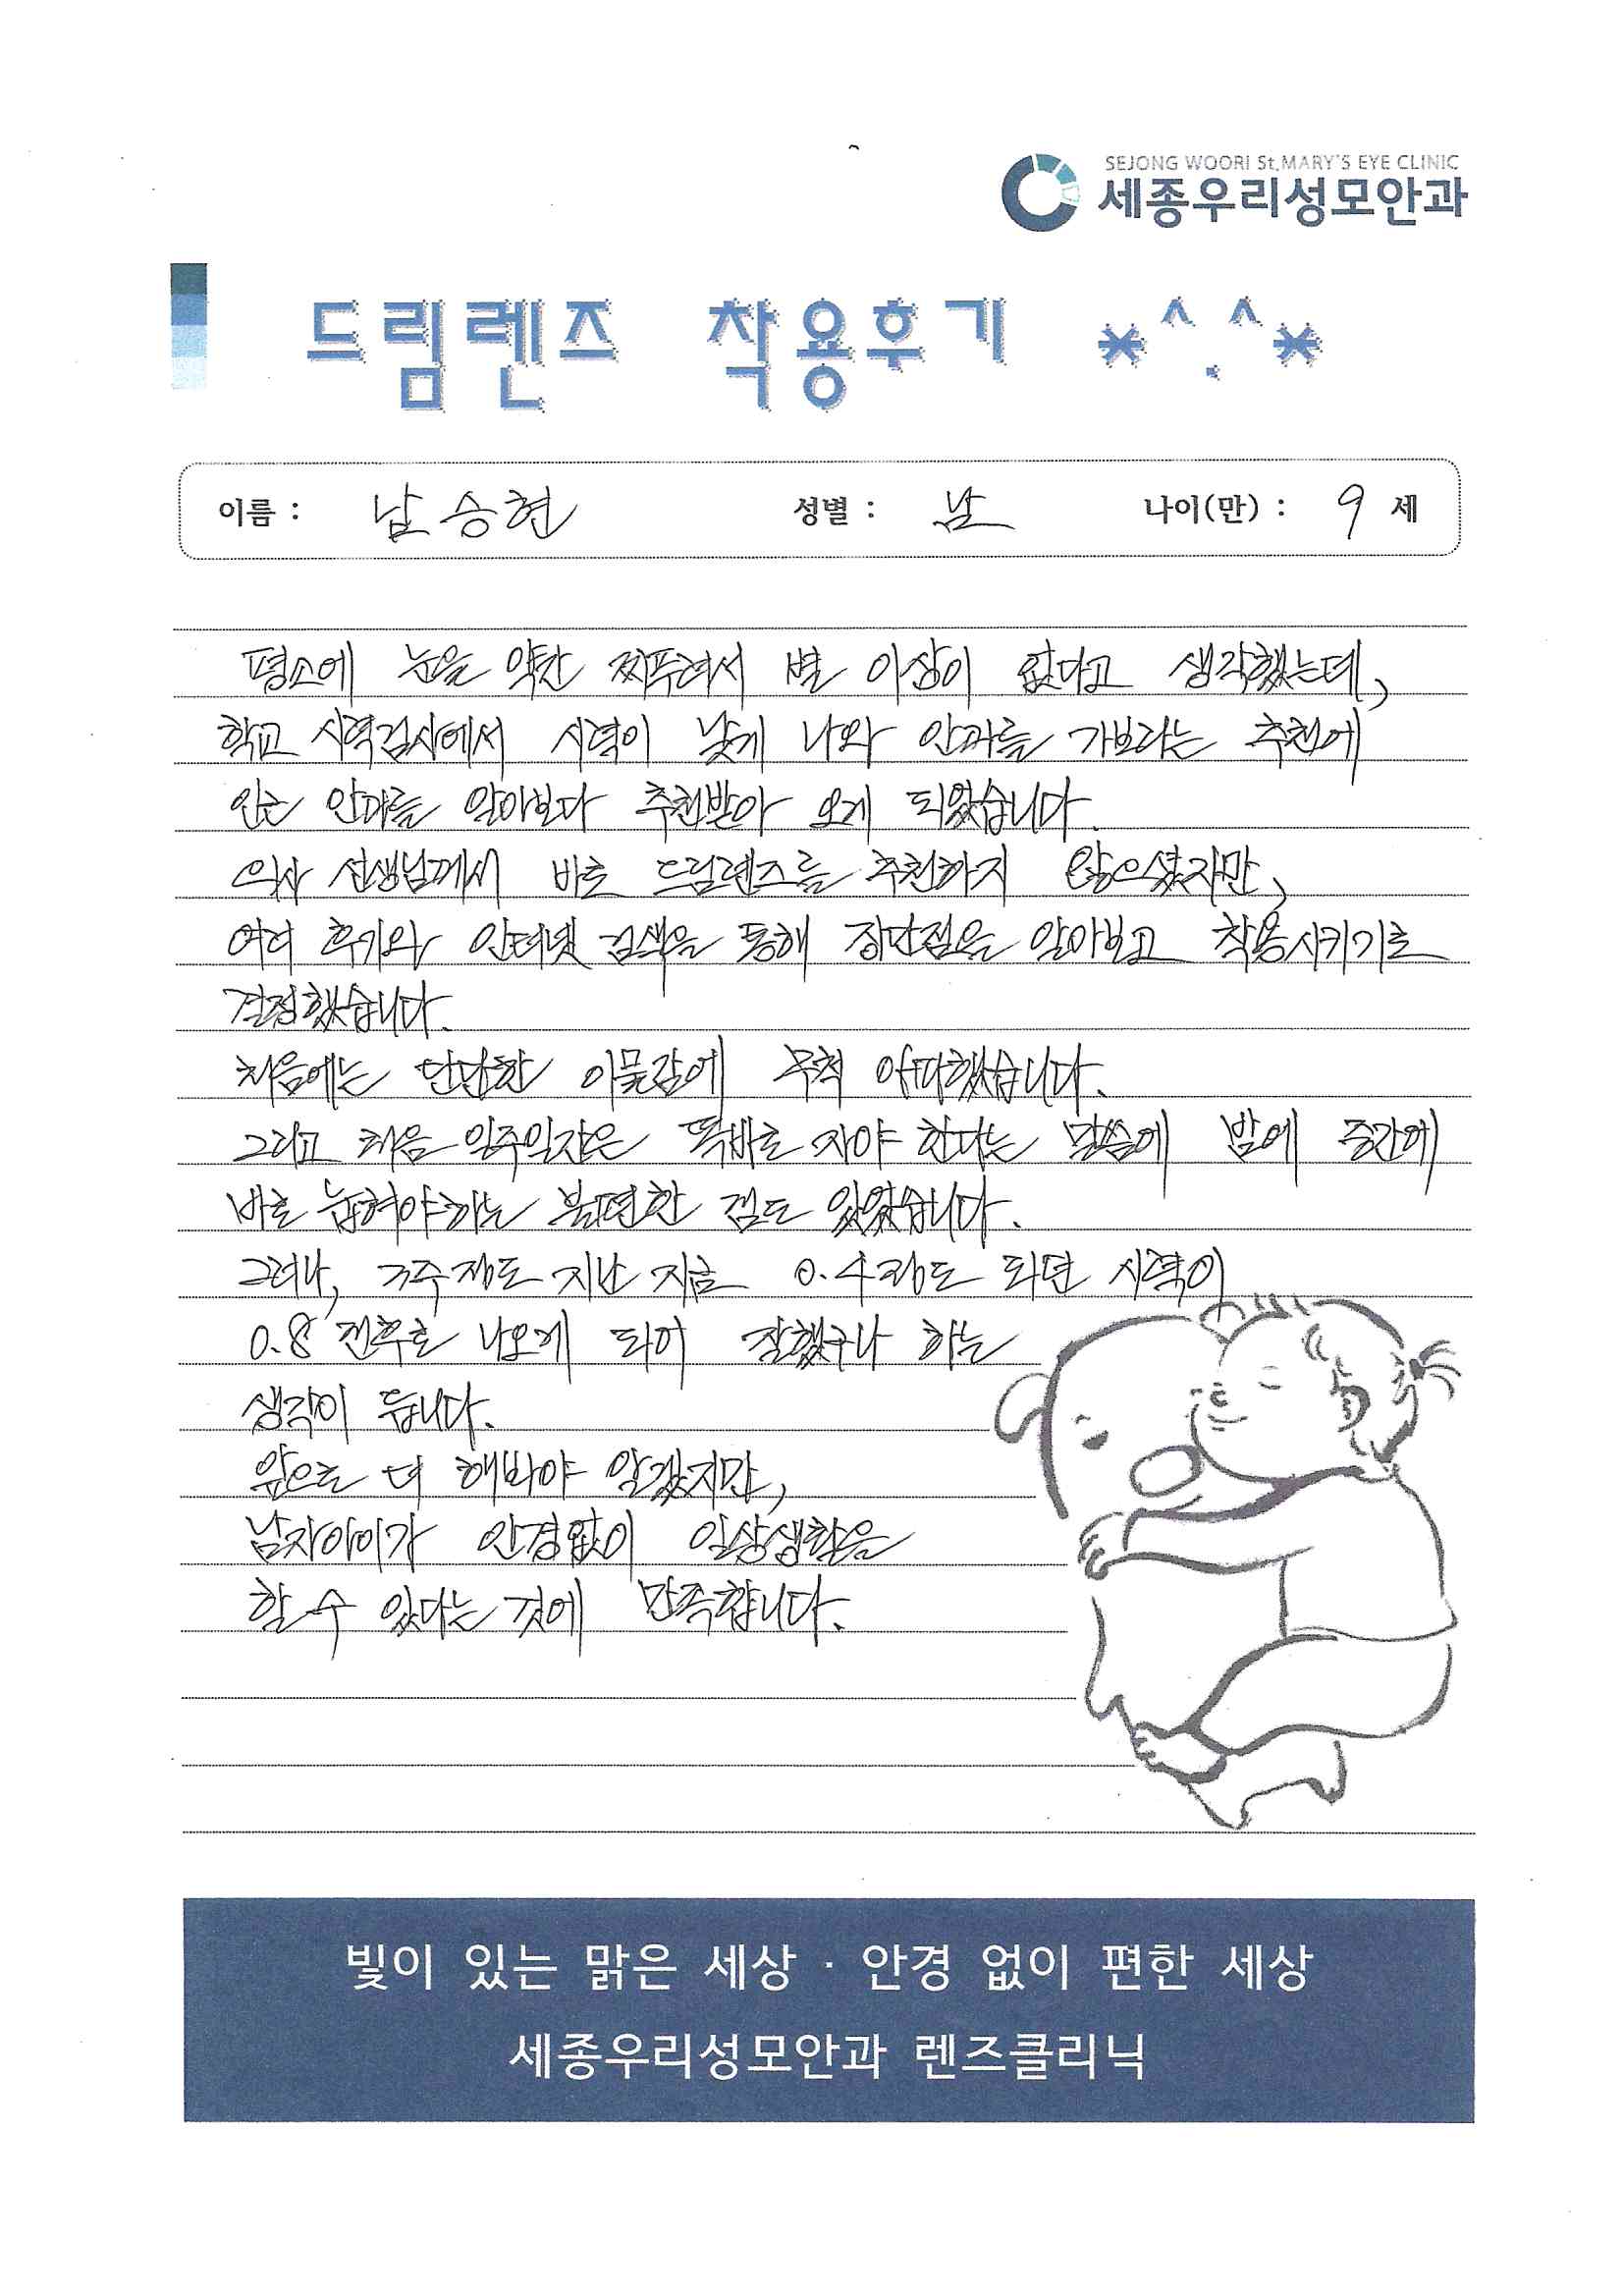 SEJONG WOORI St.MARY'S EYE CLINIC
세종우리성모안과
드림렌즈 착용후기 *^.^*
이름 : 남승현 성별 : 남 나이(만) : 9 세
평소에 눈을 약간 찌푸려서 별 이상이 없다고 생각했는데,
학교 시력검사에서 시력이 낮게 나와 안과를 가보라는 추천에
인근 안과를 알아보다 추천받아 오게 되었습니다.
의사 선생님께서 바로 드림렌즈를 추천하지 않으셨지만,
여러 후기와 인터넷 검색을 통해 장단점을 알아보고 착용시키기로
결정했습니다.
처음에는 단단한 이물감에 무척 아파했습니다.
그리고 처음 일주일간은 똑바로 자야 한다는 말씀에 밤에 중간에
바로 눕혀야하는 불편한 점도 있었습니다.
그러나, 3주 정도 지난 지금 0.4정도 되던 시력이
0.8 전후로 나오게 되어 잘했구나 하는
생각이 듭니다.
앞으로 더 해봐야 알겠지만,
남자아이가 안경없이 일상생활을
할 수 있다는 것에 만족합니다.
빛이 있는 맑은 세상 · 안경 없이 편한 세상
세종우리성모안과 렌즈클리닉